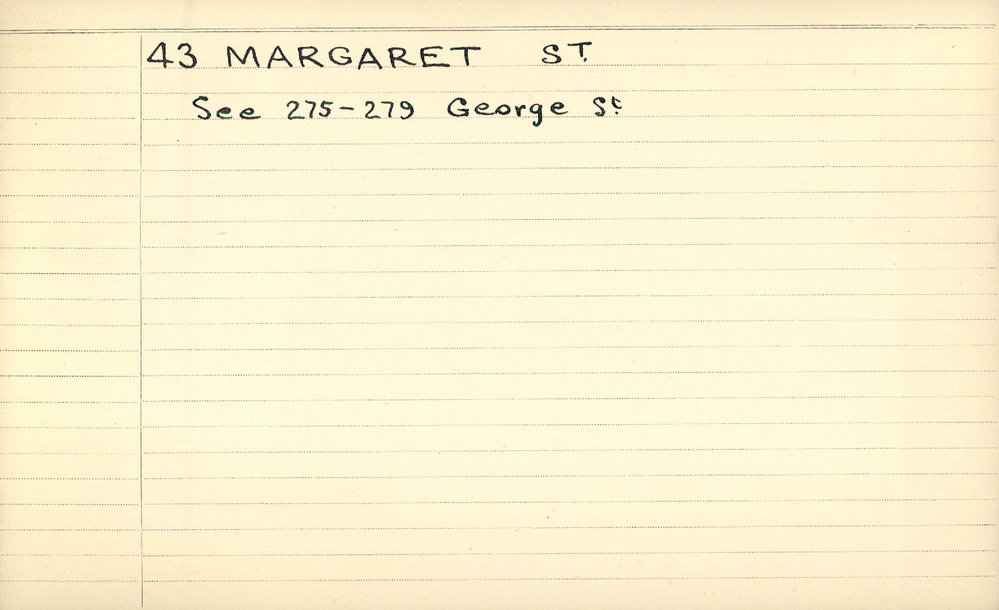 43 MARGARET ST.
See 275-279 George St.